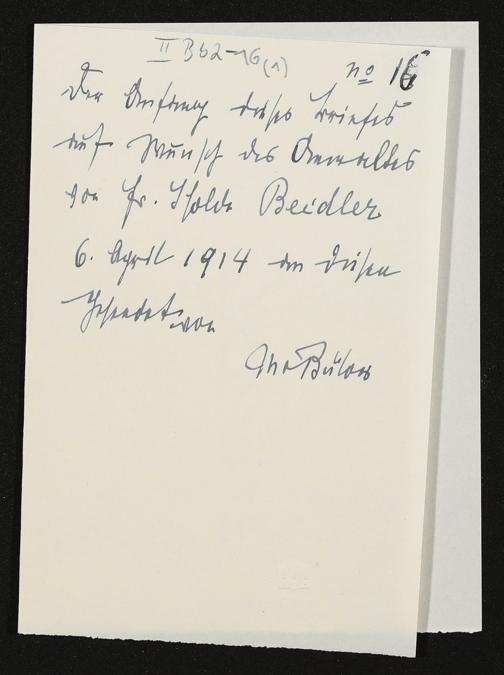 II Bb2-16(1)
No 16
Der Anfang dieses Briefes
auf Wunsch des Anwaltes
von Fr. Isolde Beidler
6. April 1914 an diesen
gesendet von
Bülow